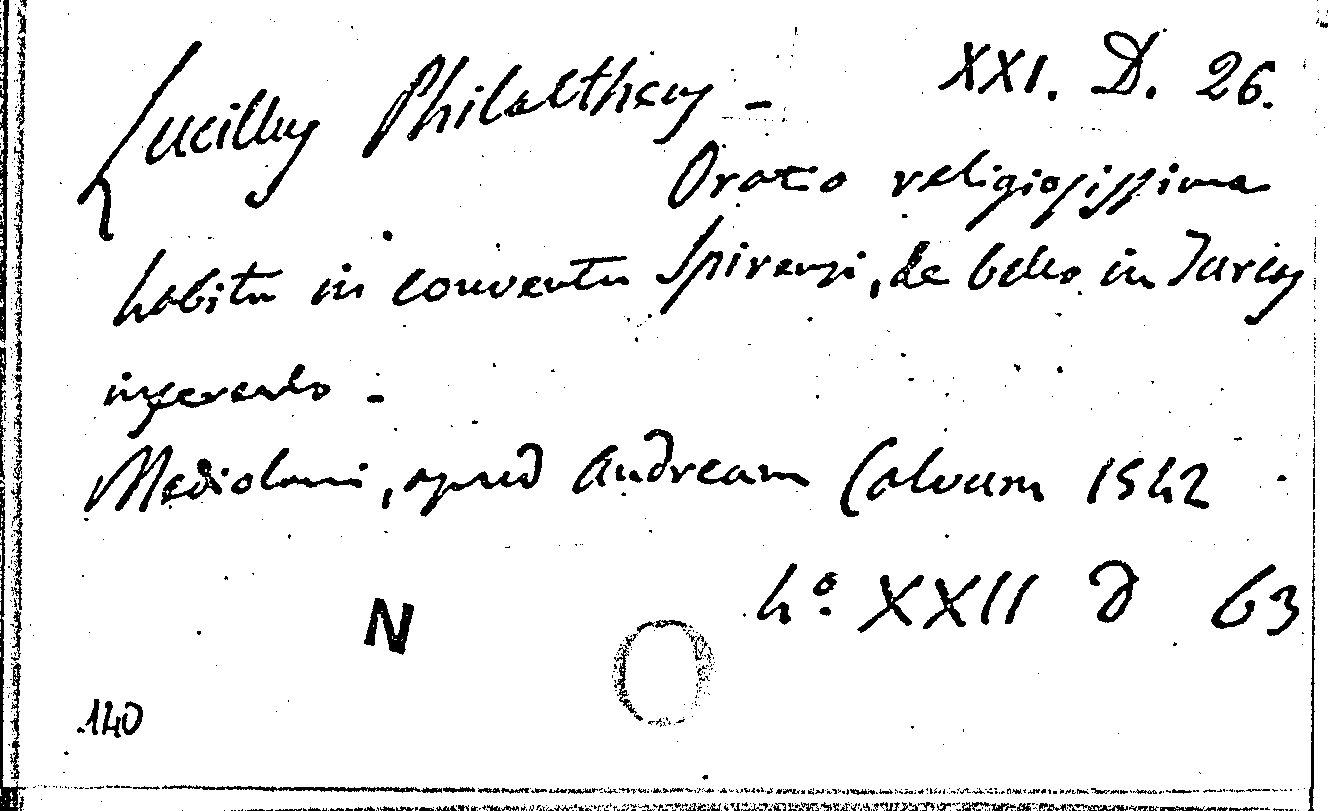 XXI. D. 26.
Lucillus Philaltheus -
Oratio religiosissima
habita in conventu Spirensi, de bello in Turcas
inferendo -
Mediolani, apud Andream Calvum 1542
4º XXII D 63
N
140